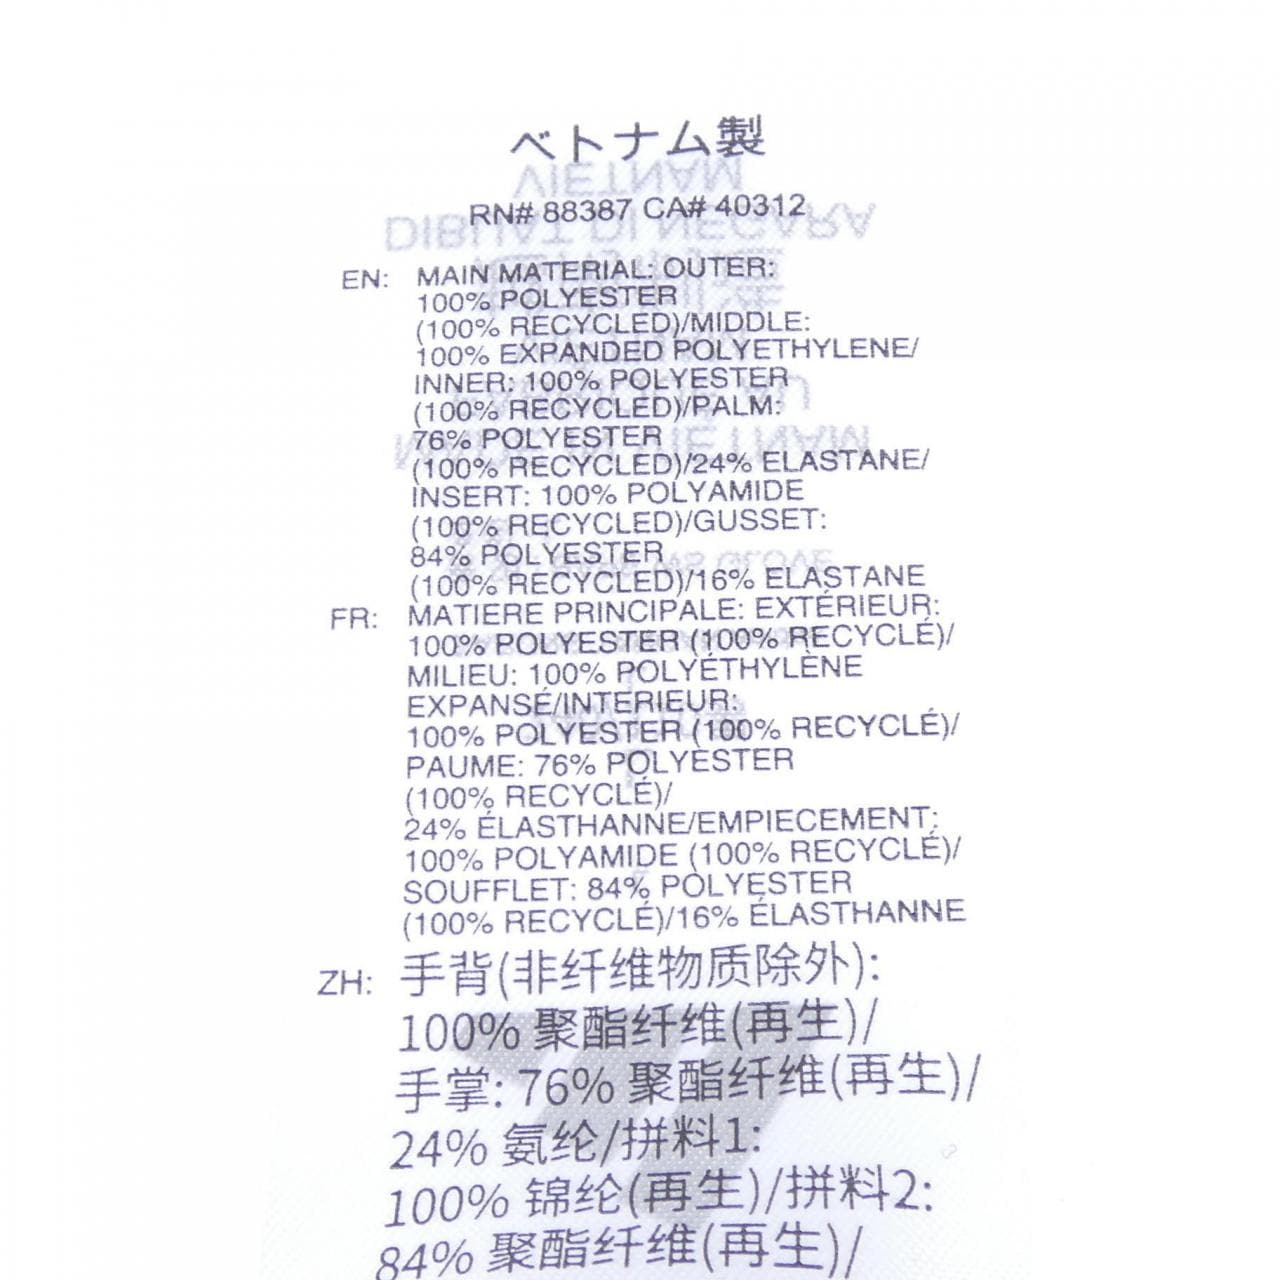 ベトナム製
RN# 88387 CA# 40312
EN: MAIN MATERIAL: OUTER:
100% POLYESTER
(100% RECYCLED)/MIDDLE:
100% EXPANDED POLYETHYLENE/
INNER: 100% POLYESTER
(100% RECYCLED)/PALM:
76% POLYESTER
(100% RECYCLED)/24% ELASTANE/
INSERT: 100% POLYAMIDE
(100% RECYCLED)/GUSSET:
84% POLYESTER
(100% RECYCLED)/16% ELASTANE
FR: MATIERE PRINCIPALE: EXTÉRIEUR:
100% POLYESTER (100% RECYCLÉ)/
MILIEU: 100% POLYÉTHYLÈNE
EXPANSÉ/INTERIEUR:
100% POLYESTER (100% RECYCLÉ)/
PAUME: 76% POLYESTER
(100% RECYCLÉ)/
24% ÉLASTHANNE/EMPIECEMENT:
100% POLYAMIDE (100% RECYCLÉ)/
SOUFFLET: 84% POLYESTER
(100% RECYCLÉ)/16% ÉLASTHANNE
ZH: 手背(非纤维物质除外):
100% 聚酯纤维(再生)/
手掌: 76% 聚酯纤维(再生)/
24% 氨纶/拼料1:
100% 锦纶(再生)/拼料2:
84% 聚酯纤维(再生)/